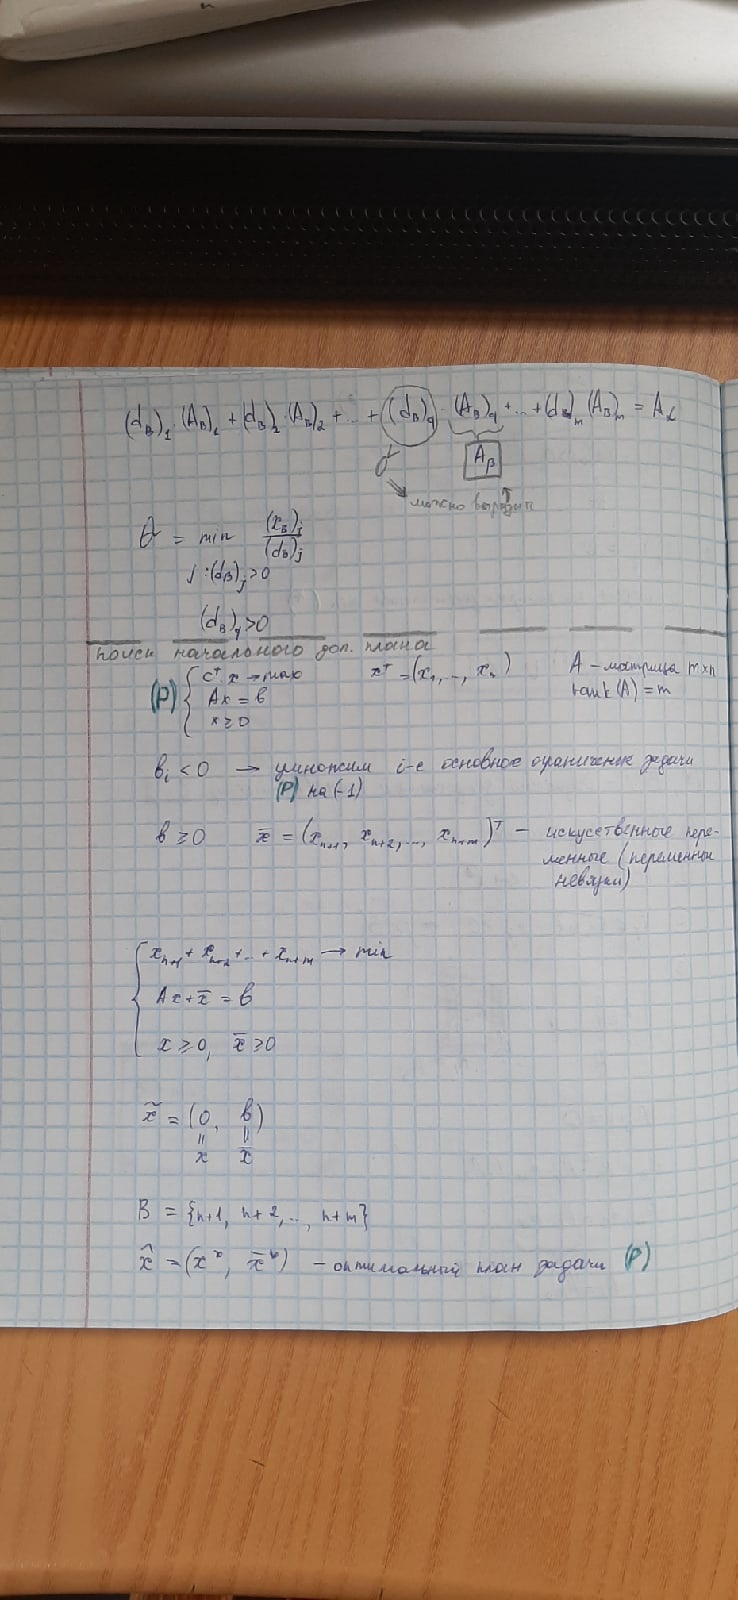 (d_B)_1 (A_B)_1 + (d_B)_2 (A_B)_2 + ... + (d_B)_q · (A_B)_q + ... + (d_B)_m (A_B)_m = A_α
A_β
можно выразить
θ = min (x_B)_j / (d_B)_j
j : (d_B)_j > 0
(d_B)_q > 0
поиск начального доп. плана
(P) { c^T x → max x^T = (x_1, ..., x_n) A – матрица m×n
Ax = b rank(A) = m
x ≥ 0
b_i < 0 → умножим i-е основное ограничение задачи
(P) на (-1)
b ≥ 0 x̄ = (x_{n+1}, x_{n+2}, ..., x_{n+m})^T – искуственные пере-
менные (переменные
невязки)
{ x_{n+1} + x_{n+2} + ... + x_{n+m} → min
Ax + x̄ = b
x ≥ 0, x̄ ≥ 0
x̃ = (0, b)
= =
x x̄
B = {n+1, n+2, ..., n+m}
x̂ = (x*, x̄*) – оптимальный план задачи (P)